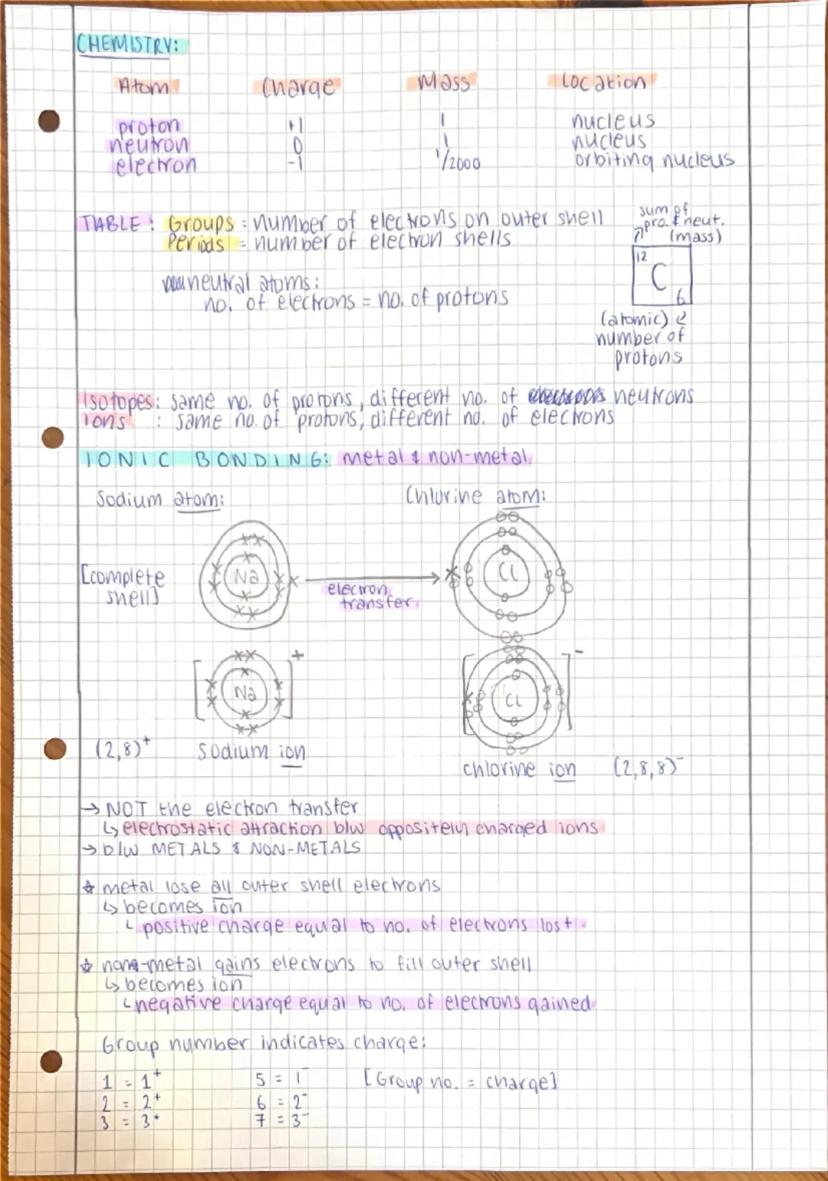 CHEMISTRY:
Atom Charge Mass Location
proton +1 1 nucleus
neutron 0 1 nucleus
electron -1 1/2000 orbiting nucleus
TABLE: Groups = number of electrons on outer shell
Periods = number of electron shells
sum of
pro. & neut.
(mass)
12
C
6
(atomic)
number of
protons
neutral atoms:
no. of electrons = no. of protons
Isotopes: same no. of protons, different no. of neutrons
Ions : same no. of protons, different no. of electrons
IONIC BONDING: metal & non-metal
Sodium atom: Chlorine atom:
[complete
shell]
Na
electron
transfer
Cl
[Na]+
[Cl]-
(2,8)+ sodium ion
chlorine ion (2,8,8)-
→ NOT the electron transfer
↳ electrostatic attraction b/w oppositely charged ions
→ b/w METALS & NON-METALS
☆ metal lose all outer shell electrons
↳ becomes ion
↳ positive charge equal to no. of electrons lost.
☆ non-metal gains electrons to fill outer shell
↳ becomes ion
↳ negative charge equal to no. of electrons gained
Group number indicates charge:
1 = 1+ 5 = 1- [Group no. = charge]
2 = 2+ 6 = 2-
3 = 3+ 7 = 3-